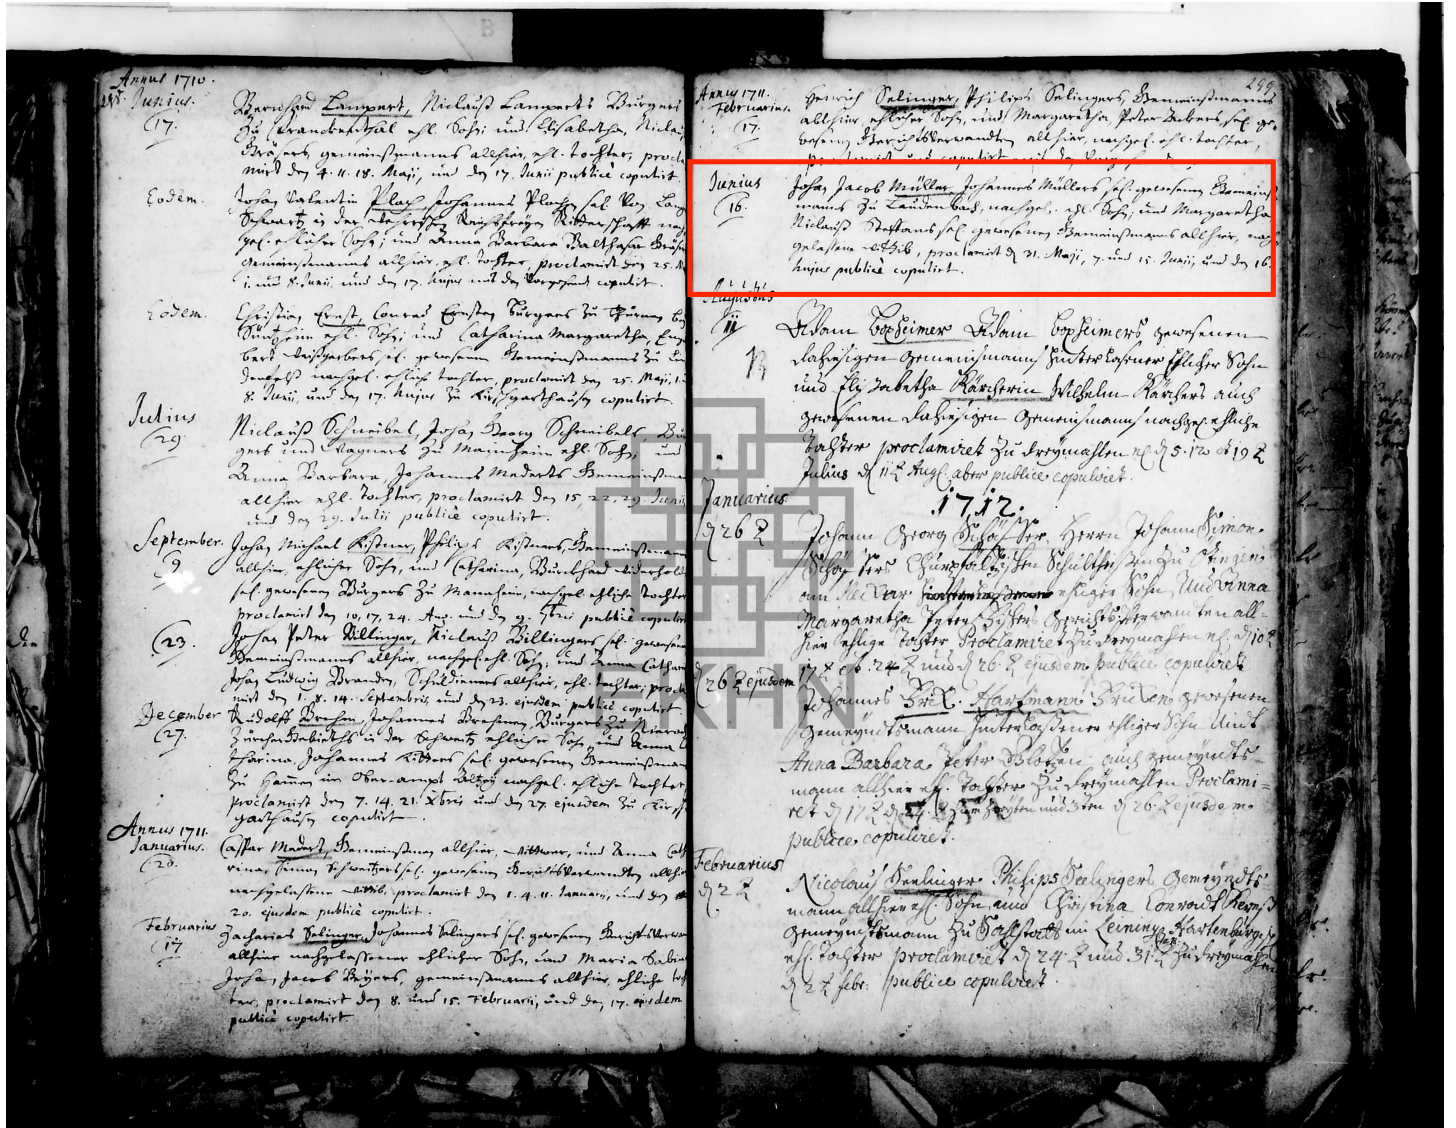 Annus 1710.
Junius.
17.
Bernhard Lampert, Niclauß Lamperts Burgers
zu Franckenthal ehl. Sohn; und Elisabetha, Niclauß
gemeinßmanns allhier, ehl. tochter, procla
mirt den 4. 11. 18. Maji, und den 17. Junii publicè copulirt
Eodem.
Johan Valentin Plach, Johannes Plachen sel. von
in der Reichsfreyen Ritterschafft
gel. ehlicher Sohn; und Anna Barbara Balthasar
Gemeinßmanns allhier, ehl. tochter, proclamirt den 25.
1. und 8. Junii, und den 17. hujus mit den Vorgehend copulirt.
Eodem.
Christian Ernst, Conrad Ernsten Burgers zu
ehl. Sohn; und Catharina Margaretha,
sel. gewesenen Gemeinßmanns zu
nachgel. ehlich tochter, proclamirt den 25. Maji, 1.
8. Junii, und den 17. hujus zu Kirschgarthausen copulirt.
Julius
29.
Niclauß Schreibel, Johan Georg Schreibels, Bur
gers und Wagners zu Mannheim ehl. Sohn, und
Anna Barbara, Johannes Mederts Gemeinßmans
allhier ehl. tochter, proclamirt den 15, 22, 29. Junii
und den 29. Julii publicè copulirt.
September.
9
Johan Michael Kistner, Philips Kistners, Gemeinßmanns
allhier, ehlicher Sohn, und Catharina, Burckhard
sel. gewesenen Burgers zu Mannheim, nachgel. ehliche tochter
proclamirt den 10, 17, 24. Aug. und den 9. 7bris publicè copulirt
23.
Johan Peter Billinger, Niclauß Billingers sel. gewesenen
Gemeinßmanns allhier, nachgel. ehl. Sohn; und Anna Cathari
Johan Ludwig Branden, Schuldieners allhier, ehl. tochter; procla
mirt den 1. 8. 14. Septembris, und den 23. ejusdem publicè copulirt
December
27.
Rudolff Brehm, Johannes Brehmen, Burgers zu
Zürcher Gebieths in der Schweitz ehlicher Sohn und Anna
tharina, Johannes sel. gewesenen Gemeinßmans
zu im Ober-ampt Altzey nachgel. ehliche tochter
proclamirt den 7. 14. 21. Xbris und den 27. ejusdem zu Kirsch
garthausen copulirt.
Annus 1711.
Januarius.
20.
Caspar Medert, Gemeinßman allhier, Wittwer, und Anna Cath
rina, Simon Schweitzers sel. gewesenen Gerichtsverwandten allhier
nachgelassene Wittib, proclamirt den 1. 4. 11. Januarii, und den
20. ejusdem publicè copulirt.
Februarius
17
Zacharias Selinger, Johannes Selingers sel. gewesenen Gerichtsverwan
allhier nachgelassener ehlicher Sohn, und Maria Sabin
Johan Jacob Beyers, gemeinßmanns allhier, ehliche toch
ter, proclamirt den 8. und 15. Februarii, und den 17. ejusdem
publicè copulirt.
299
Annus 1711.
Februarius.
17.
Henrich Selinger, Philips Selingers, Gemeinßmanns
allhier ehlicher Sohn, und Margaretha, Peter sel. ge-
wesenen Gerichtsverwandten allhier, nachgel. ehl. tochter,
proclamirt und copulirt mit den Vorgehenden
Junius
16.
Johan Jacob Müller, Johannes Müllers sel. gewesenen Gemeinß
manns zu Laudenbach, nachgel. ehl. Sohn; und Margaretha
Niclauß Steffans sel. gewesenen Gemeinßmanns allhier, nach
gelassene Wittib, proclamirt d 31. Maji, 7. und 15. Junii, und den 16.
hujus publicè copulirt.
Augustus
11
Adam Boxheimer Adam Boxheimers gewesenen
dahiesigen gemeinsmanns hinterlasener Ehlicher Sohn
und Elisabetha Kärcherin Wilhelm Kärchers auch
gewesenen dahiesigen gemeinsmanns nachgel. ehliche
tochter proclamiret zu dreymahlen d 5. 12 et 19
Julius d 11 Aug. aber publice copuliret.
1712.
Januarius
d 26
Johann Georg Schäffer, Herrn Johann Simon
Schäffers Churpfaltzischen Schultheisen zu
am Neckar ehliger Sohn Und Anna
Margaretha Peter Gerichtsverwanten all-
hier ehlige tochter Proclamiret zu dreymahlen d 10
17 24 und d 26 ejusdem publice copuliret
d 26 ejusdem
Johannes Bril. Hartmann Brilen gewesenen
gemeyndtsmann hinterlassener ehliger Sohn Und
Anna Barbara Peter auch gemeyndts-
mann allhier ehl. tochter zu dreymahlen Proclami-
ret d 17 d 24 zum zweyten und 3ten d 26 ejusdem
publice copuliret.
Februarius
d 2
Nicolaus Seelinger Philips Seelingers gemeyndts-
mann allhier ehl. Sohn und Christina Conradt
gemeyndtsmann zu im Leining Hartenburg
ehl. tochter proclamiret d 24 und 31 zu dreymahlen
d 2 febr: publice copuliret.
EKHN